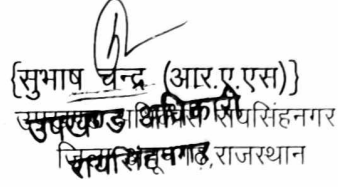 {सुभाष चन्द्र (आर.ए.एस)}
उपखण्ड अधिकारी रायसिंहनगर
रायसिंहनगर, राजस्थान